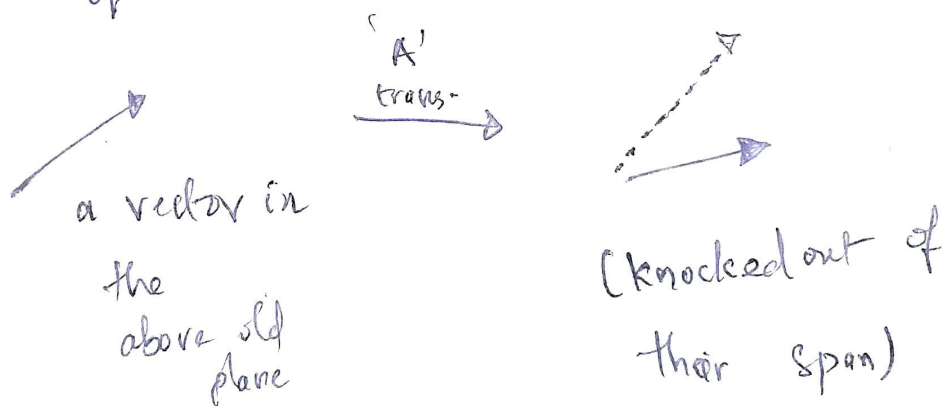 'A'
trans-
a vector in
the
above old
plane
(knocked out of
their span)